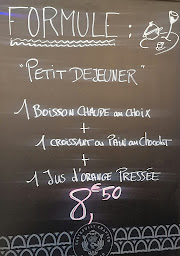 FORMULE :
"PETIT DEJEUNER"
1 BOISSON CHAUDE au CHOIX
+
1 CROISSANT ou PAIN au CHOCOLAT
+
1 JUS D'ORANGE PRESSÉE
8,€50